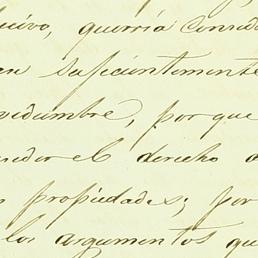 querría consid
an suficientemente
vidumbre, por que
eder el derecho
propiedades; por
los argumentos qu